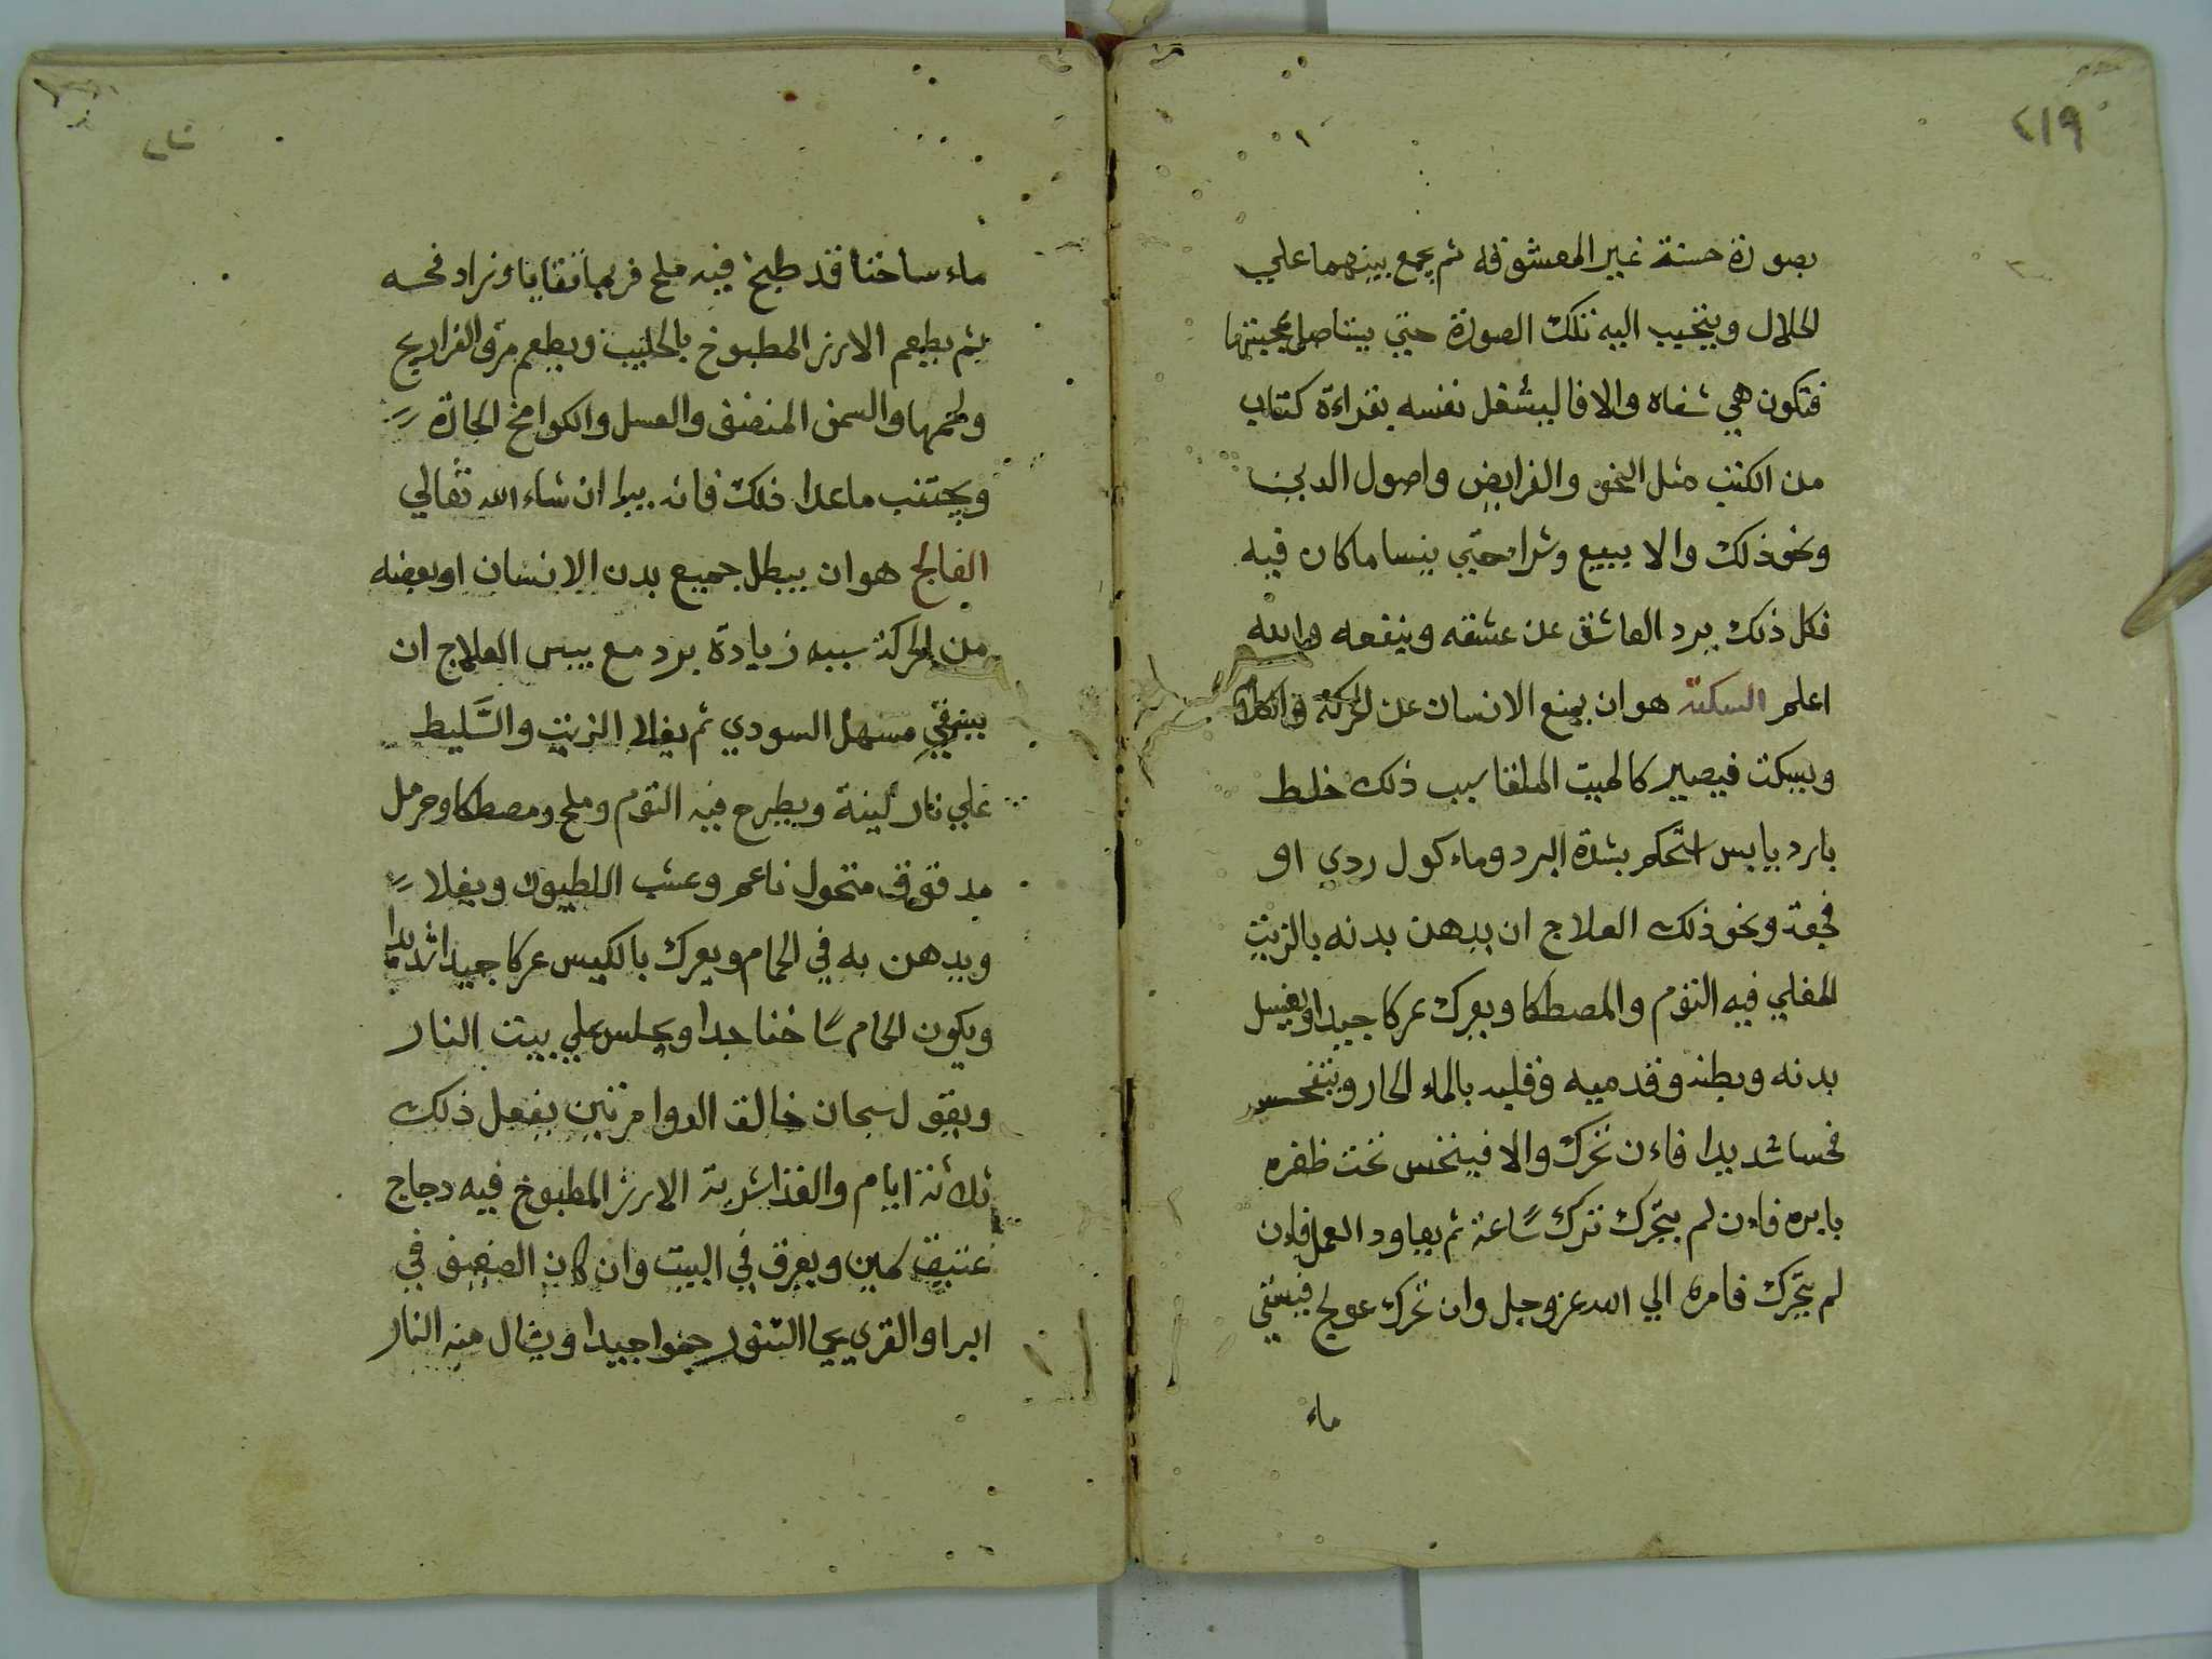 ٢١٩
بصورة حسنة غير المعشوقة ثم يجمع بينهما علي
الحلال ويتحبب اليه تلك الصورة حتي يتناصل محبتها
فتكون هي شفاه والا فاليشغل نفسه بقراءة كتاب
من الكتب مثل النحو والفرايض واصول الدين
ونحو ذلك والا يبيع وشرا حتي ينسا ماكان فيه
فكل ذلك يرد العاشق عن عشقه وينفعه والله
اعلم السكتة هو ان يمنع الانسان عن الحركة والكلام
ويسكت فيصير كالميت الملقا سبب ذلك خلط
بارد يابس استحكم بشدة البرد وماءكول ردي او
فجعة ونحو ذلك العلاج ان يدهن بدنه بالزيت
المغلي فيه الثوم والمصطكا ويعرك عركا جيدا ويغسل
بدنه وبطنه وقدميه وقلبه بالماء الحار
فحسا شديدا فاءن تحرك والا فينخس تحت ظفره
بابره فاءن لم يتحرك ترك ساعة ثم يعاود العمل فاءن
لم يتحرك فامره الي الله عز وجل وان تحرك عولج فيسقي
ماء
ماء ساخنا قد طبخ فيه ملح فربما تقايا وزاد فحسه
ثم يطعم الارز المطبوخ بالحليب ويطعم مرق الفراريج
ولحمها والسمن والعسل والكوامخ الحارة
ويجتنب ماعدا ذلك فانه يبرا ان شاء الله تعالي
الفالج هو ان يبطل جميع بدن الانسان او بعضه
من الحركة سببه زيادة برد مع يبس العلاج ان
يسقي مسهل السودي ثم يغلا الزيت والسليط
علي نار لينة ويطرح فيه الثوم وملح ومصطكا وحرمل
مدقوق منخول ناعم وعشب ويغلا
ويدهن به في الحمام ويعرك بالكيس عركا جيدا شديدا
ويكون الحمام ساخنا جدا ويجلس علي بيت النار
ويقول سبحان خالق الدوا مرتين يفعل ذلك
ثلاثة ايام والغذا شربة الارز المطبوخ فيه دجاج
عتيق سمين ويعرق في البيت وان كان الضعيف في
البر او القرى يحما التنور حموا جيدا ويشال منه النار